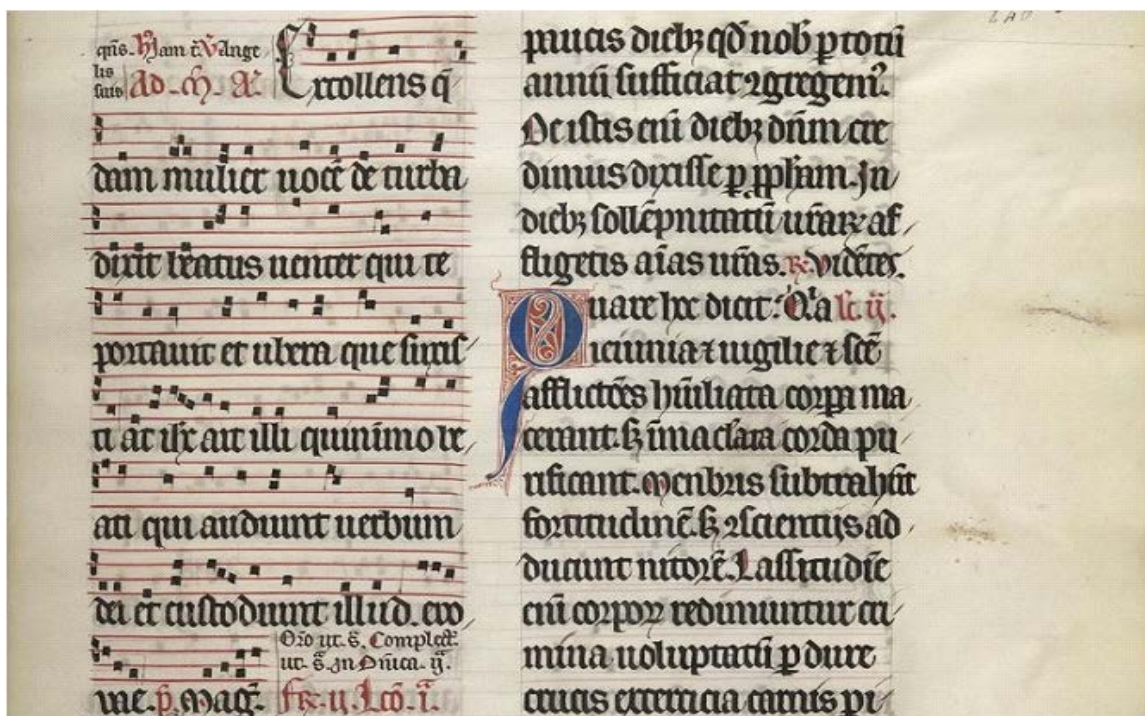 qñs. Hȳm c̄ V̄ Ange
lis
suis Ad. m̄. a.
Extollens q̄
dam mulier uocē de turba
dixit beatus uenter qui te
portauit et ubera que suxis
ti at ihc̄ ait illi quinimo be
ati qui audiunt uerbum
dei et custodiunt illud. evo
vae. p̄. Magn̄.
Orō ut. s̄. Complet̄.
ut. s̄. In Dn̄ica. ij.
Fr̄. ij. Lcō. i.
paucis diebꝫ qd̄ nob̄ p totū
annū sufficiat ꝯgregemꝰ.
De istis eni diebꝫ dn̄m cre
dimus dixisse ꝑ ꝓpham. In
diebꝫ sollēpnitatū ur̄aꝝ af
fligetis aīas ur̄as. R. Vidētes.
Quare hec dicit: Qͥa lc̄. ij.
ieiunia ⁊ uigilie ⁊ sc̄e
afflictōes hūiliata corpa ma
cerant. sꝫ īmaclata corda pu
rificant. Menbris subtrahūt
fortitudinē. sꝫ ꝯscientijs ad
ducunt nitorē. Lassitudīe
eni corpoꝝ redimuntur cri
mina uoluptatū ꝑ dure
crucis exercicia carnis pi